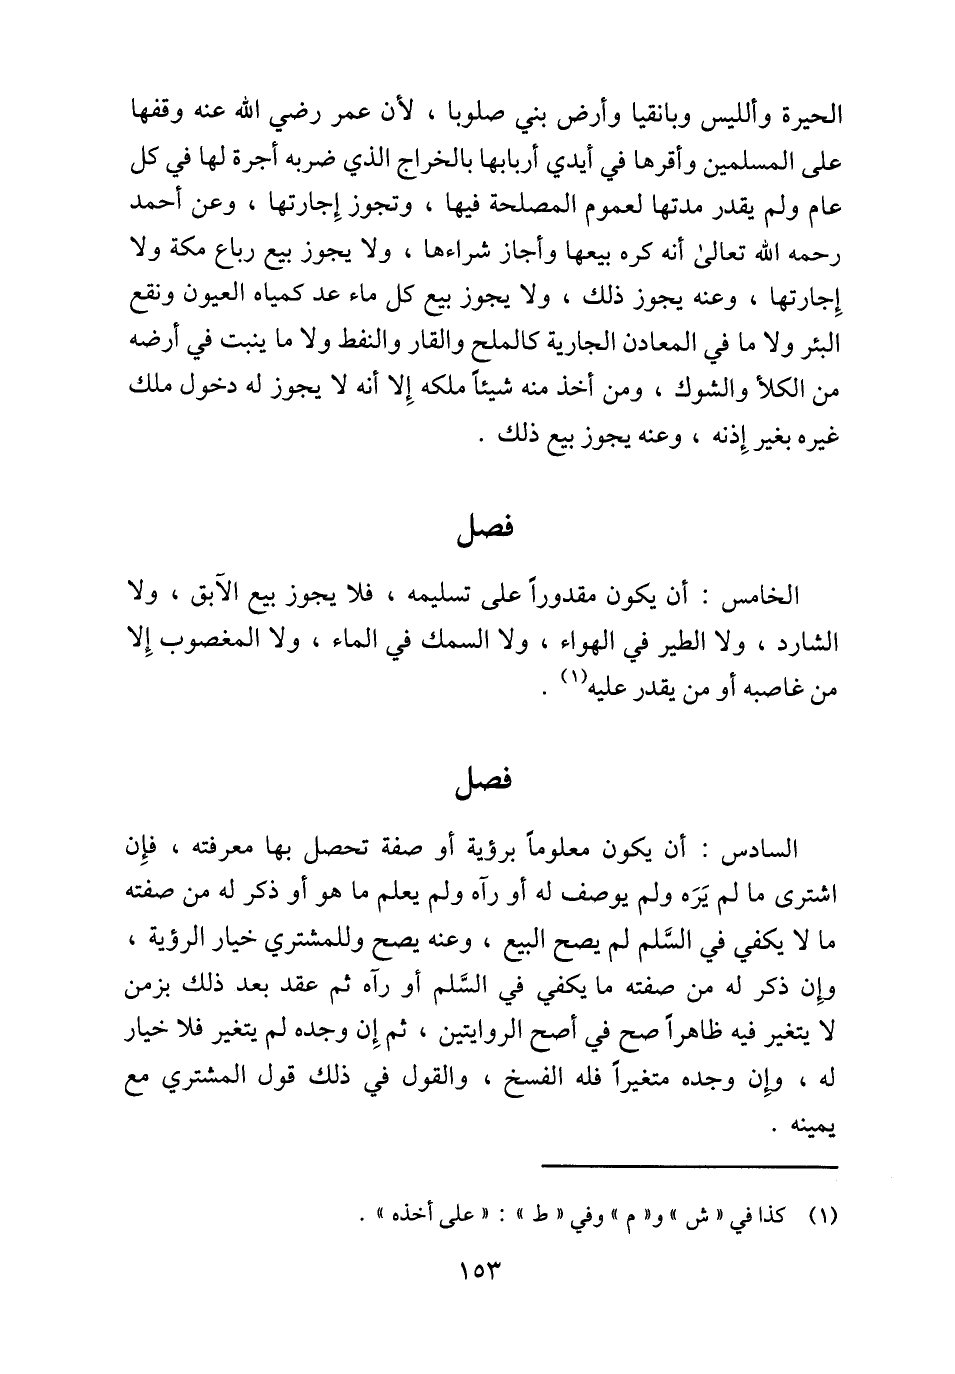 الحيرة وأَلليس وبانقيا وأرض بني صلوبا ، لأن عمر رضي الله عنه وقفها
على المسلمين وأقرها في أيدي أربابها بالخراج الذي ضربه أجرة لها في كل
عام ولم يقدر مدتها لعموم المصلحة فيها ، وتجوز إجارتها ، وعن أحمد
رحمه الله تعالىٰ أنه كره بيعها وأجاز شراءها ، ولا يجوز بيع رباع مكة ولا
إجارتها ، وعنه يجوز ذلك ، ولا يجوز بيع كل ماء عد كمياه العيون ونقع
البئر ولا ما في المعادن الجارية كالملح والقار والنفط ولا ما ينبت في أرضه
من الكلأ والشوك ، ومن أخذ منه شيئاً ملكه إلا أنه لا يجوز له دخول ملك
غيره بغير إذنه ، وعنه يجوز بيع ذلك .
فصل
الخامس : أن يكون مقدوراً على تسليمه ، فلا يجوز بيع الآبق ، ولا
الشارد ، ولا الطير في الهواء ، ولا السمك في الماء ، ولا المغصوب إلا
من غاصبه أو من يقدر عليه(١) .
فصل
السادس : أن يكون معلوماً برؤية أو صفة تحصل بها معرفته ، فإن
اشترى ما لم يَرَه ولم يوصف له أو رآه ولم يعلم ما هو أو ذكر له من صفته
ما لا يكفي في السَّلم لم يصح البيع ، وعنه يصح وللمشتري خيار الرؤية ،
وإن ذكر له من صفته ما يكفي في السَّلم أو رآه ثم عقد بعد ذلك بزمن
لا يتغير فيه ظاهراً صح في أصح الروايتين ، ثم إن وجده لم يتغير فلا خيار
له ، وإن وجده متغيراً فله الفسخ ، والقول في ذلك قول المشتري مع
يمينه .
(١) كذا في « ش » و« م » وفي « ط » : « على أخذه » .
١٥٣